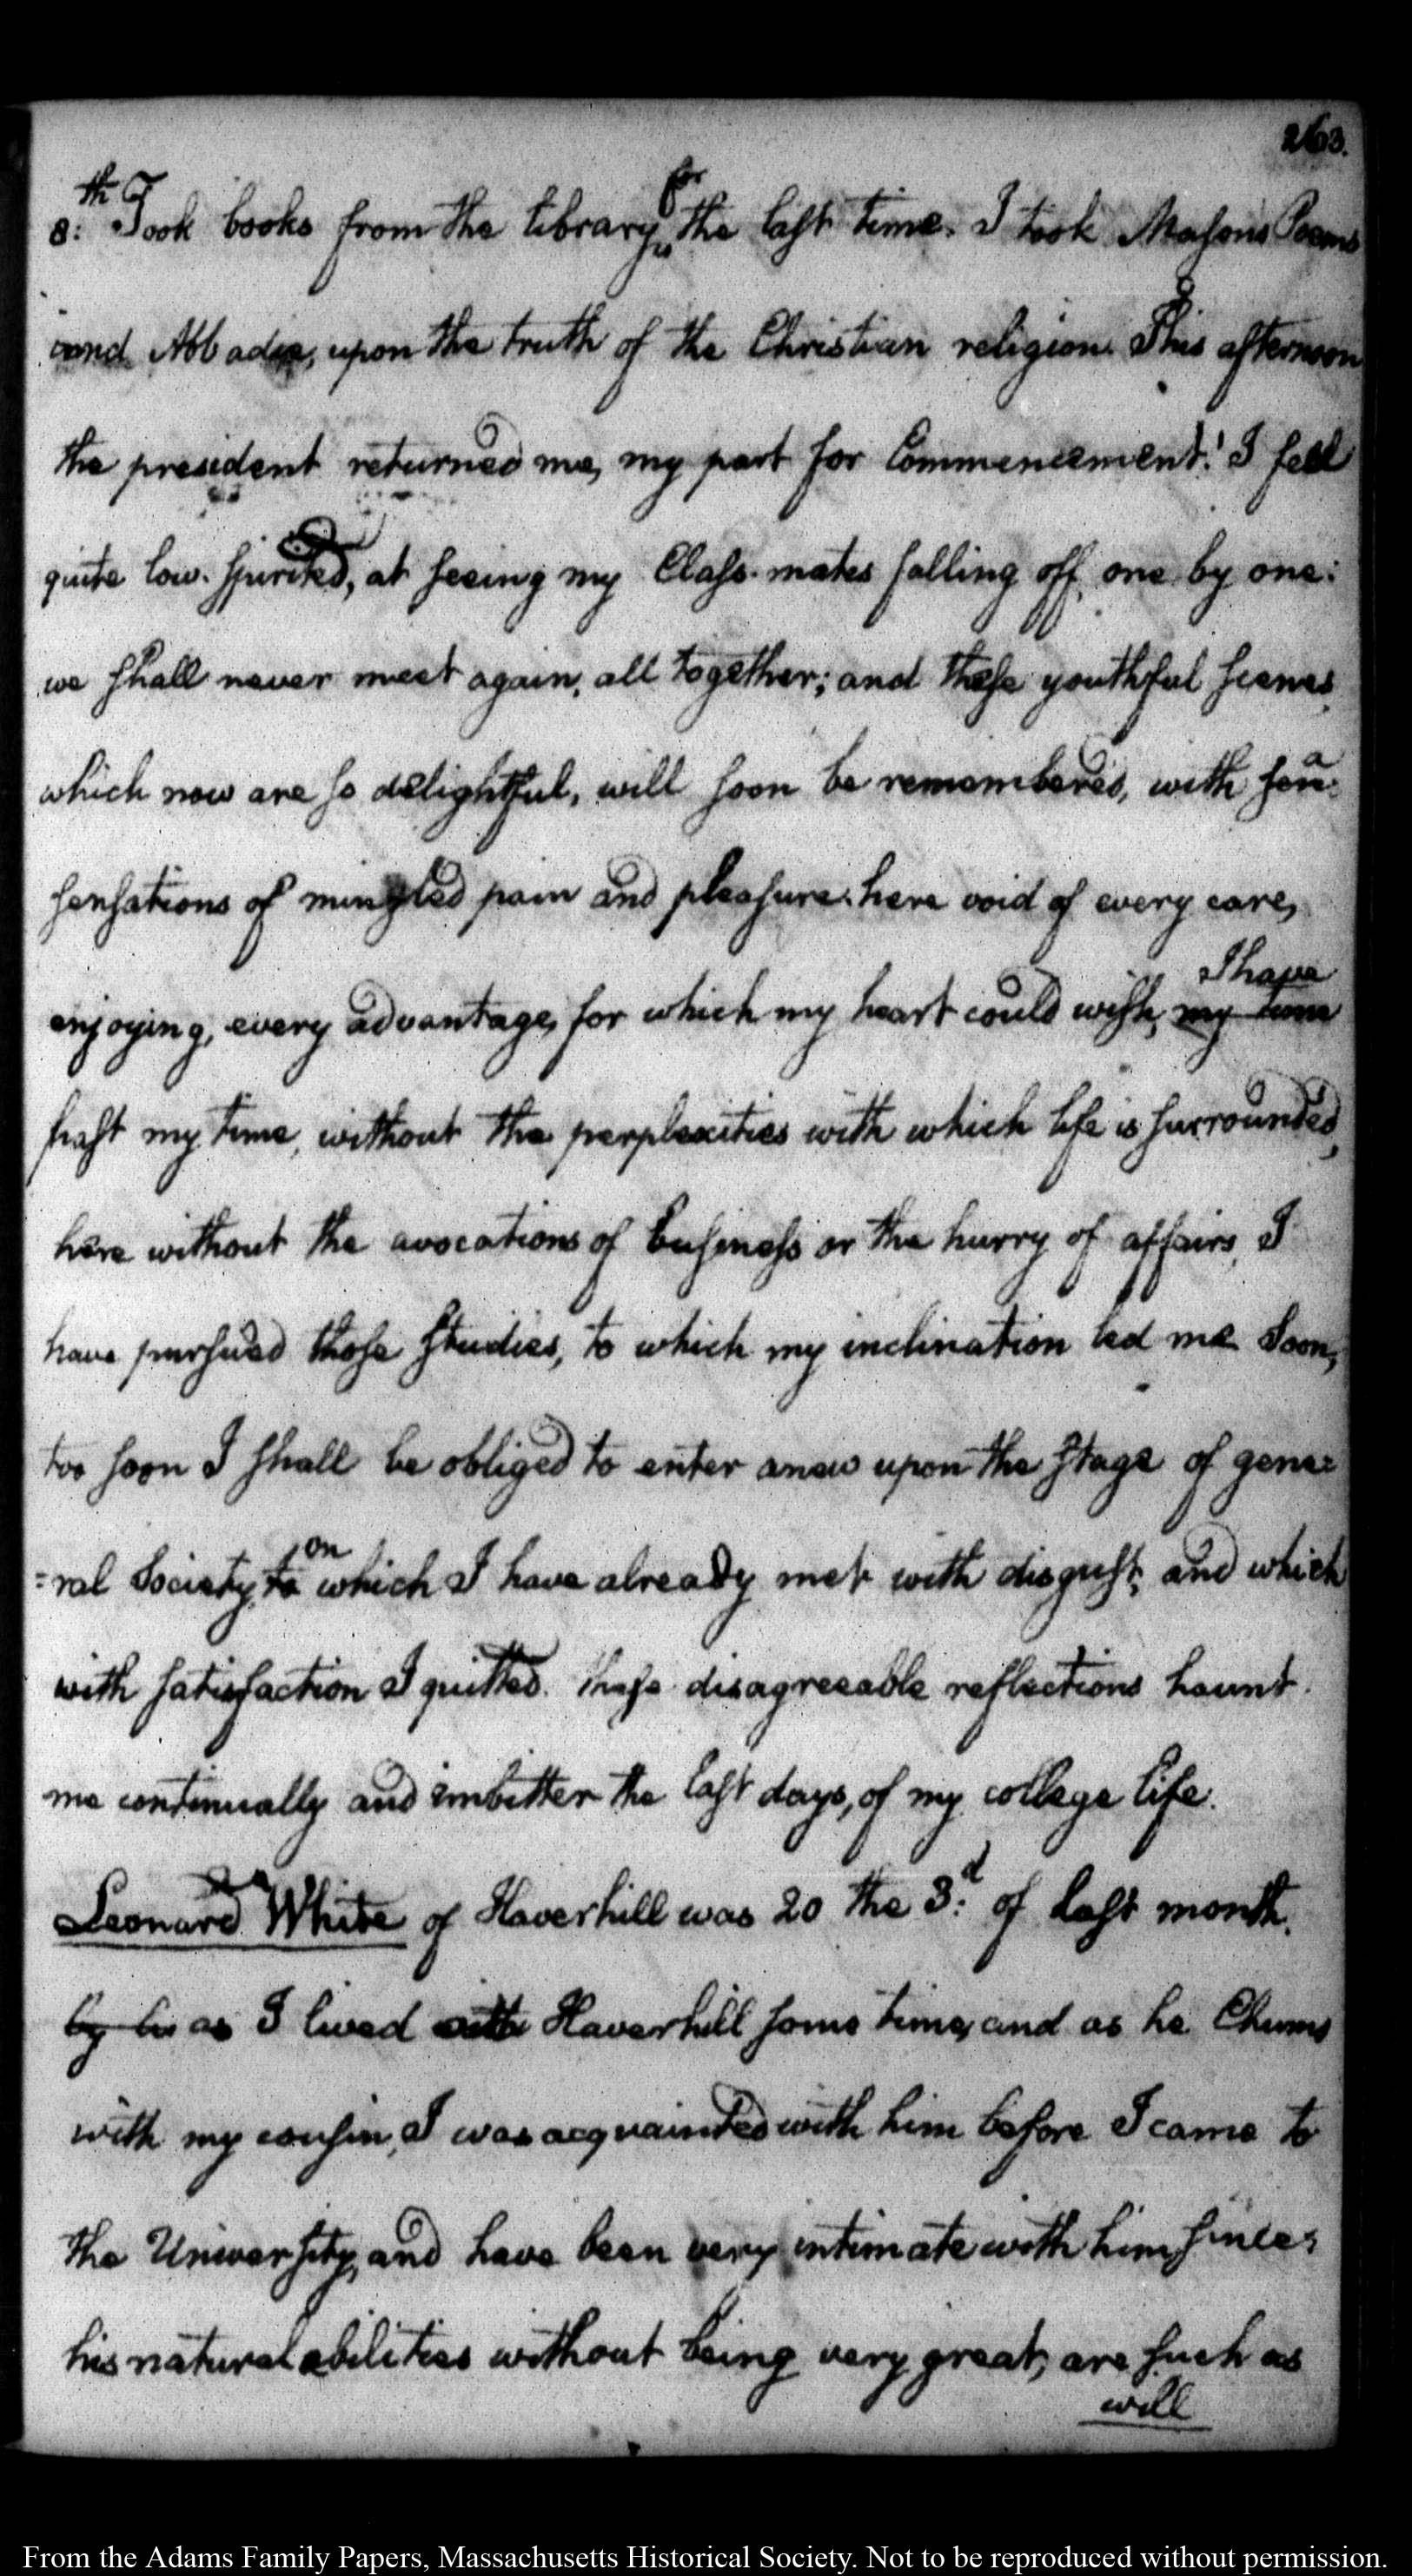 263.
8:th Took books from the library for the last time. I took Masons Poems
and Abbadie, upon the truth of the Christian religion. This afternoon
the president returned me, my part for Commencement. I feel
quite low-spirited, at seeing my Class-mates falling off one by one:
we shall never meet again, all together; and these youthful scenes,
which now are so delightful, will soon be remembered, with
sensations of mingled pain and pleasure. here void of every care,
enjoying, every advantage, for which my heart could wish, my time I have
past my time, without the perplexities with which life is surrounded,
here without the avocations of business or the hurry of affairs, I
have pursued those studies, to which my inclination led me. Soon,
too soon I shall be obliged to enter anew upon the stage of gene=
=ral Society, to on which I have already met with disgust, and which
with satisfaction I quitted. these disagreeable reflections haunt
me continually and imbitter the last days, of my college life.
Leonard White of Haverhill was 20 the 3:d of last month.
by his as I lived at Haverhill some time, and as he Chums
with my cousin, I was acquainted with him before I came to
the University, and have been very intimate with him since:
his natural abilities without being very great, are such as
will
From the Adams Family Papers, Massachusetts Historical Society. Not to be reproduced without permission.